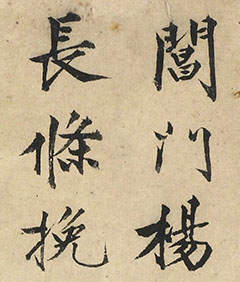 閶門楊
長條挽